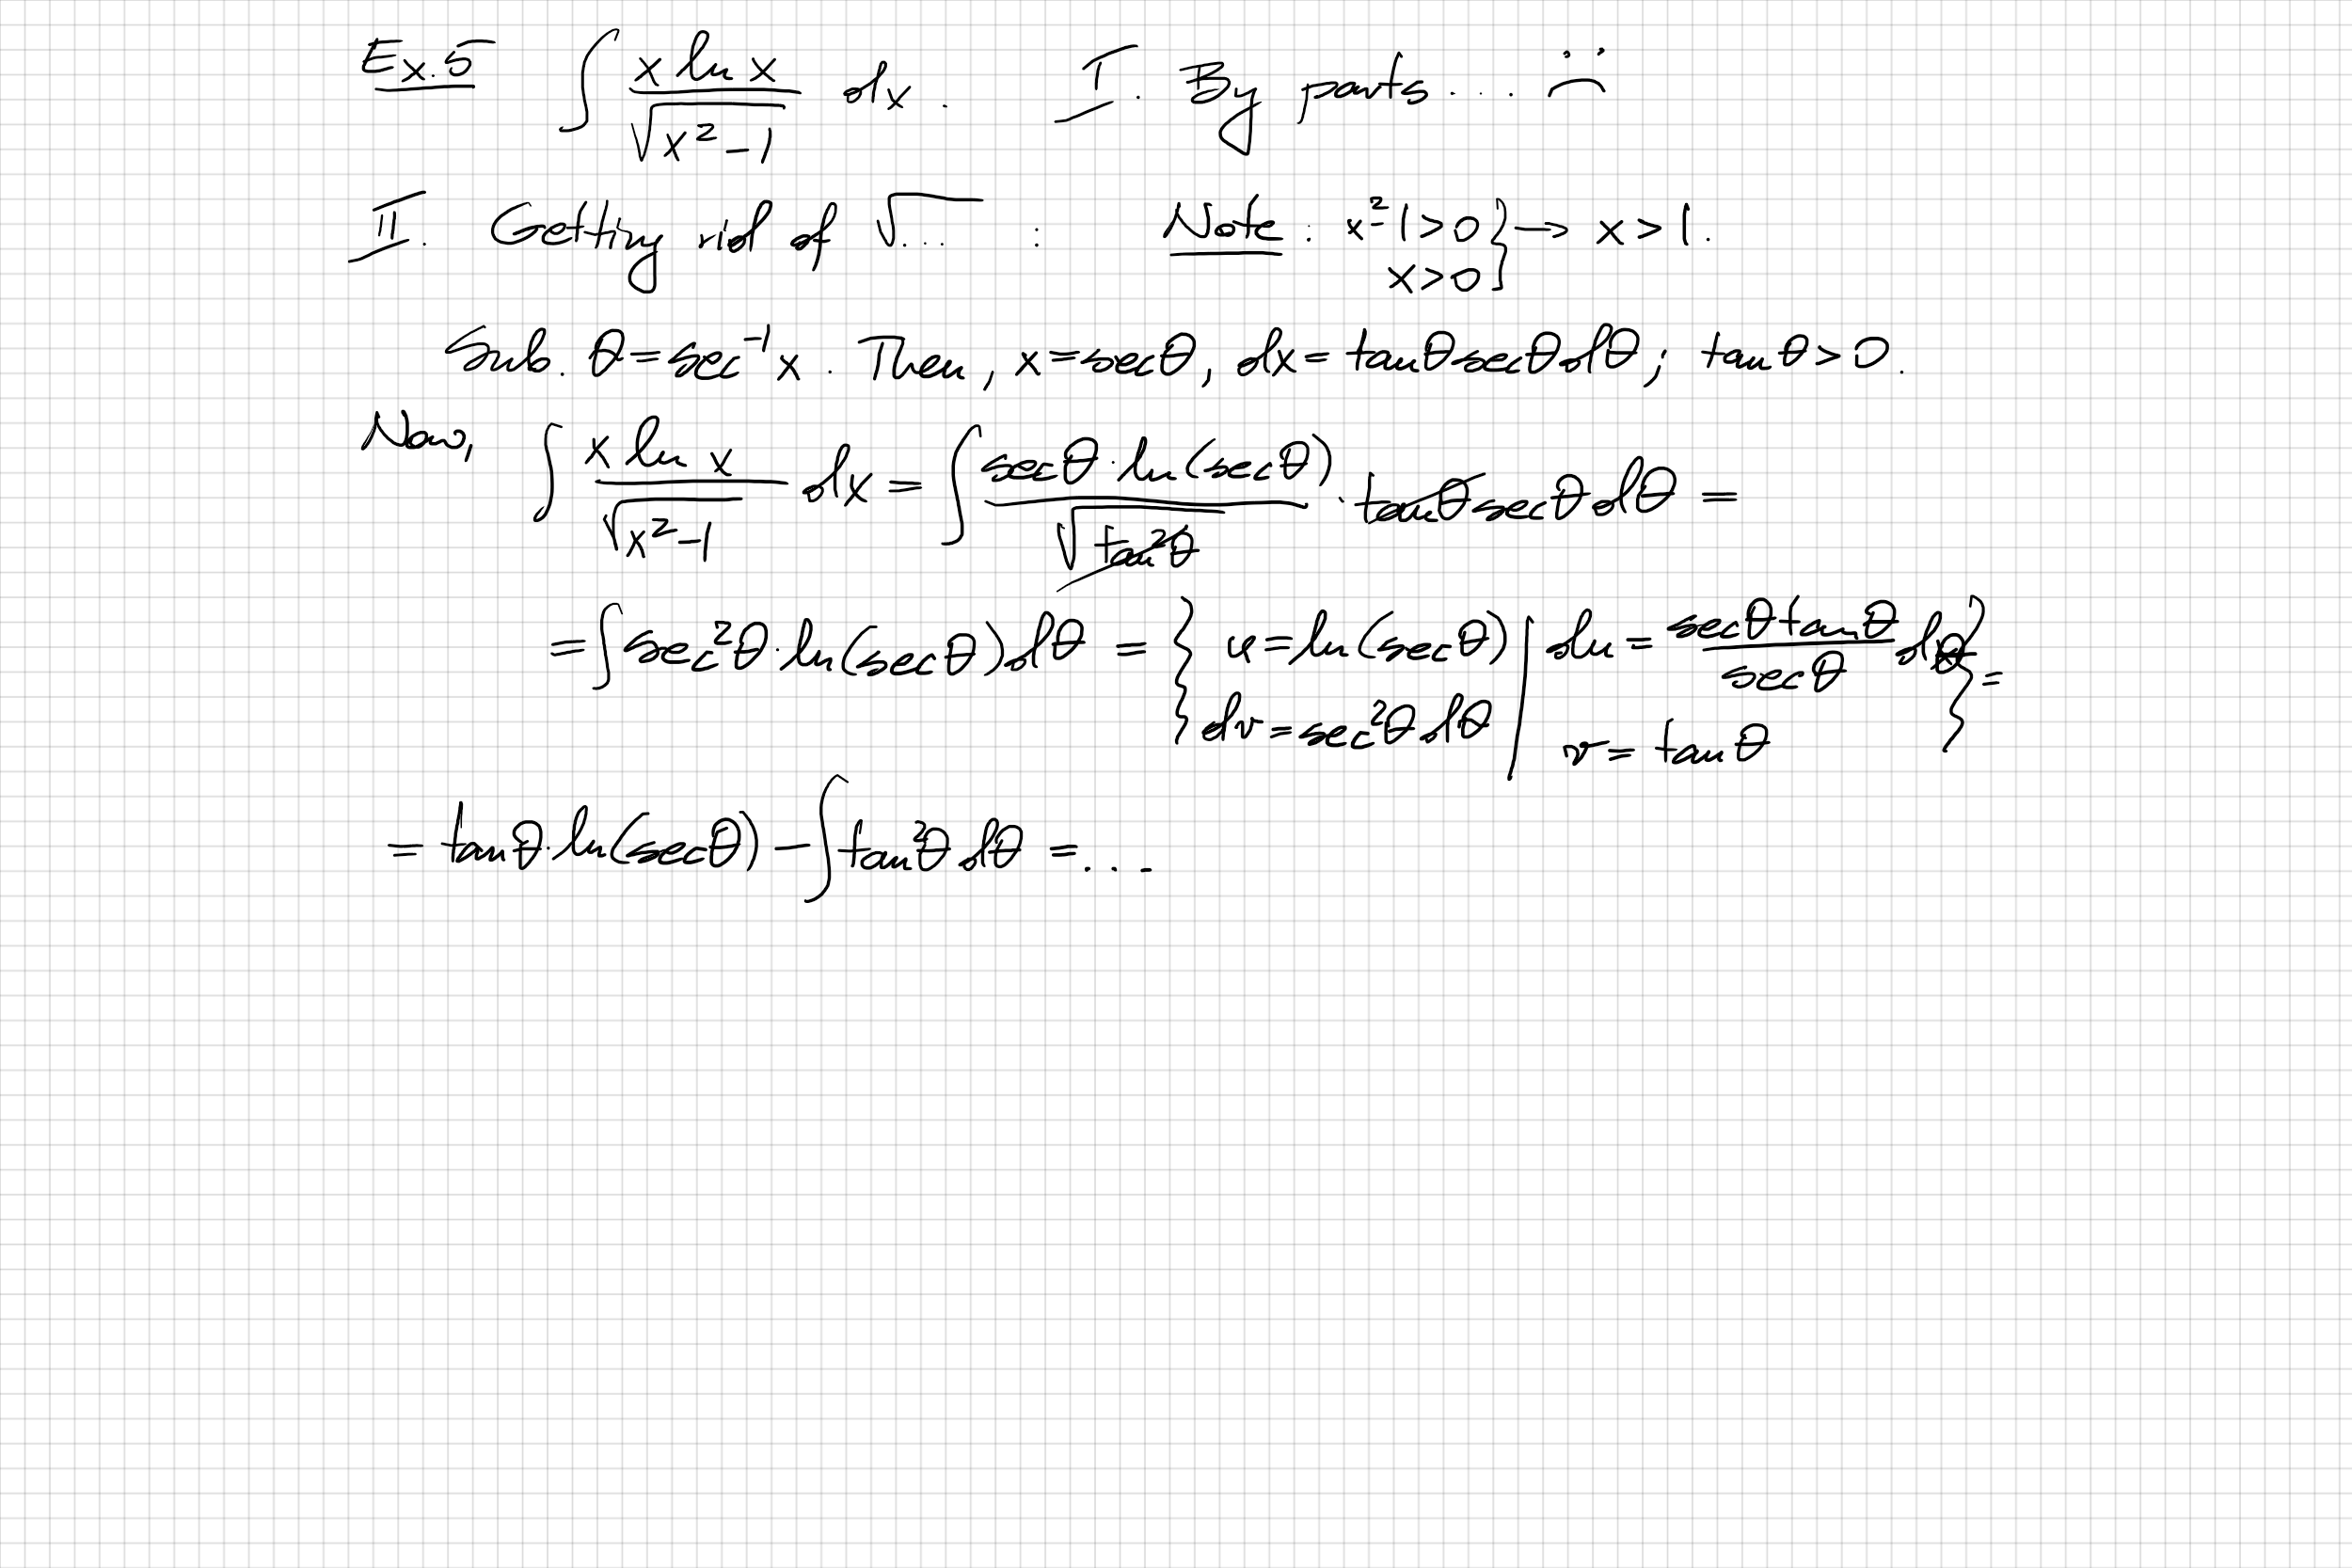 Ex.5 ∫ x ln x / √(x² – 1) dx. I. By parts... :(
II. Getting rid of √... : Note: x²–1>0 } → x>1.
x>0
Sub. θ=sec⁻¹x. Then, x=secθ, dx=tanθsecθdθ; tanθ>0.
Now, ∫ x ln x / √(x²–1) dx = ∫ secθ·ln(secθ) / √(tan²θ) · tanθsecθdθ =
= ∫ sec²θ·ln(secθ)dθ = { u=ln(secθ) | du= secθtanθ / secθ dθ } =
dv=sec²θdθ | v=tanθ
= tanθ·ln(secθ) – ∫tan²θdθ =...